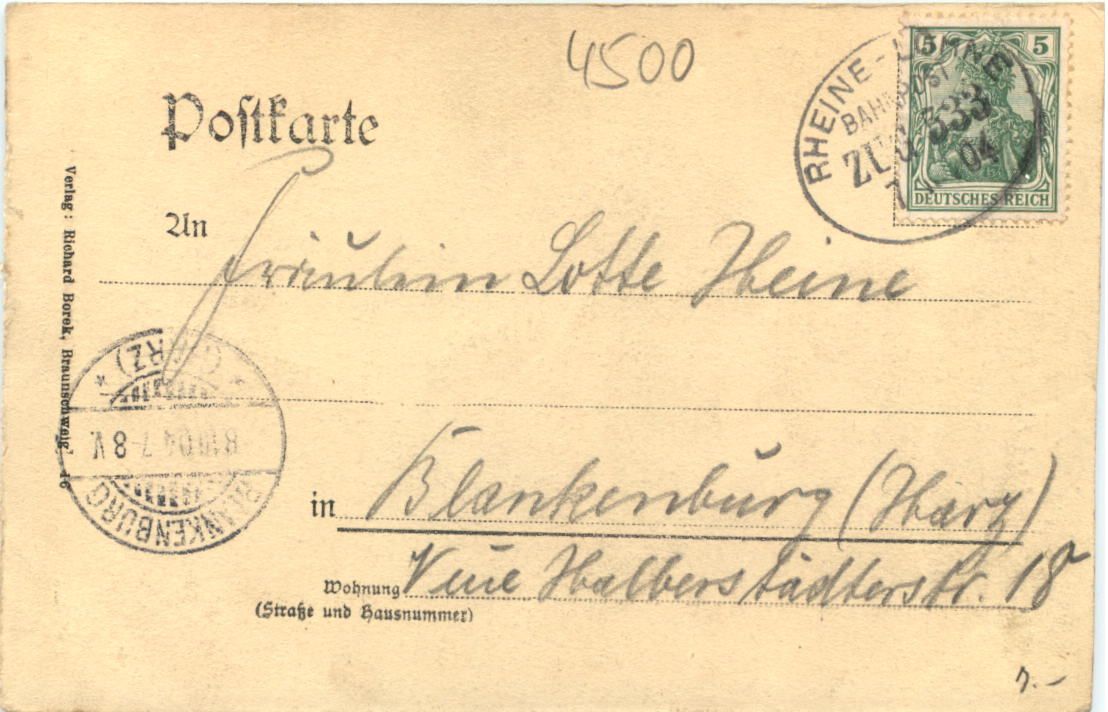 4500
Postkarte
5 5
DEUTSCHES REICH
RHEINE - LÖHNE
BAHNPOST
ZUG 333
04
An
Fräulein Lotte Heine
in Blankenburg (Harz)
Wohnung Neue Halberstädterstr. 18
(Straße und Hausnummer)
Verlag: Richard Borek, Braunschweig. 16
* (HARZ) *
04 7-8 V.
BLANKENBURG